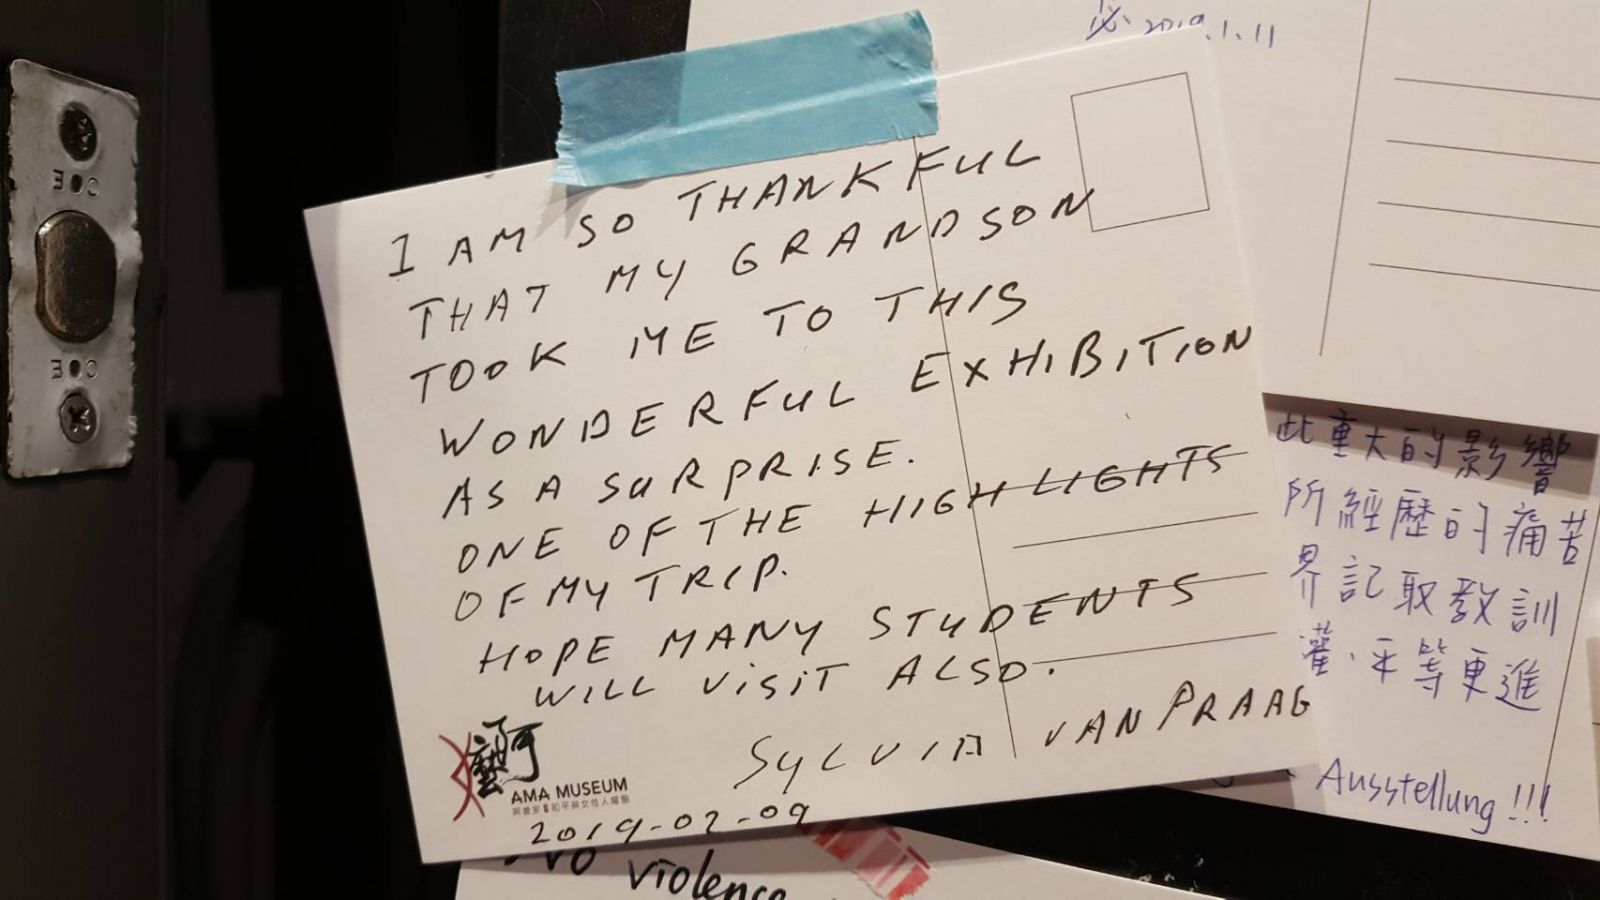 2019.1.11
I AM SO THANKFUL
THAT MY GRANDSON
TOOK ME TO THIS
WONDERFUL EXHIBITION
AS A SURPRISE.
ONE OF THE HIGHLIGHTS
OF MY TRIP.
HOPE MANY STUDENTS
WILL VISIT ALSO.
SYLVIA VAN PRAAG
阿嬤
AMA MUSEUM
阿嬤家 和平與女性人權館
2019-02-09
此重大的影響
所經歷的痛苦
界記取教訓
平等更進
Ausstellung!!!
No violence
COE
COE